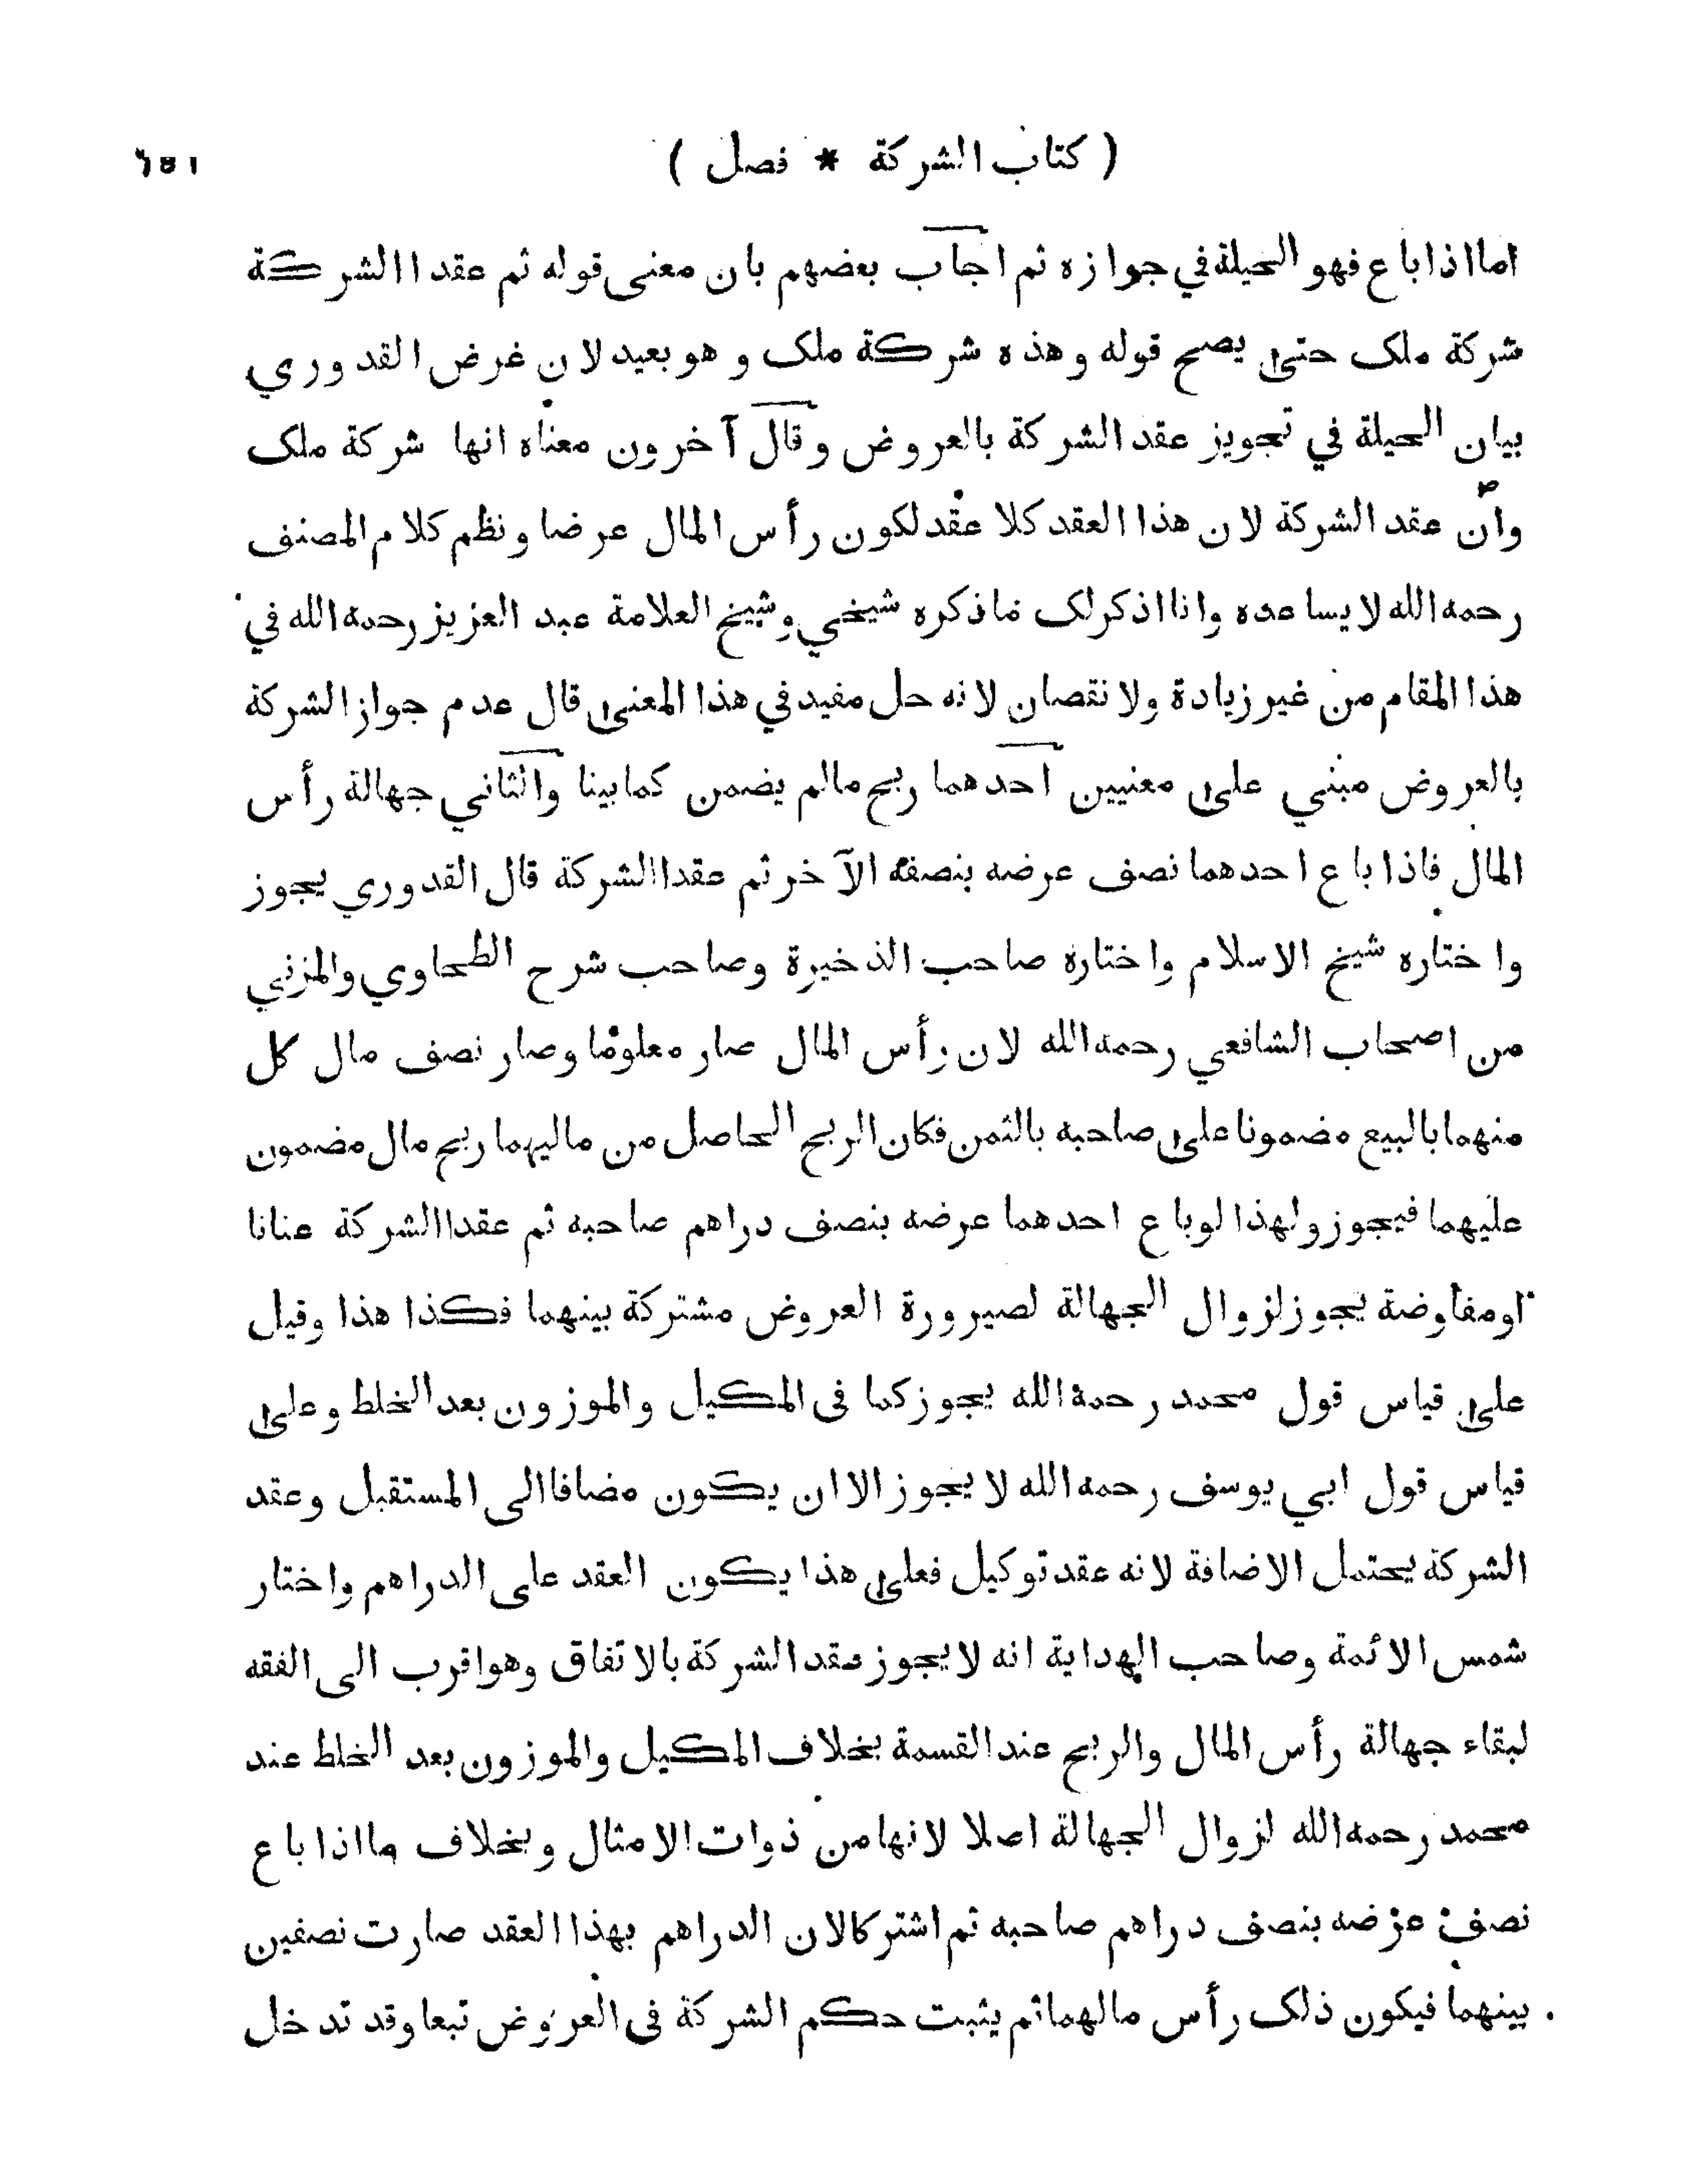 ( كتاب الشركة * فصل )
اما اذا باع فهو الحيلة في جوازه ثم اجاب بعضهم بان معنى قوله ثم عقدا الشركة
شركة ملك حتى يصح قوله وهذه شركة ملك و هو بعيد لان غرض القدوري
بيان الحيلة في تجويز عقد الشركة بالعروض وقال آخرون معناه انها شركة ملك
وان عقد الشركة لان هذا العقد كلا عقد لكون رأس المال عرضا ونظم كلام المصنف
رحمه الله لا يساعده وانا اذكر لك ماذكره شيخي وشيخ العلامة عبد العزيز رحمه الله في
هذا المقام من غير زيادة ولا نقصان لانه حل مفيد في هذا المعنى قال عدم جواز الشركة
بالعروض مبني على معنيين احدهما ربح مالم يضمن كما بينا والثاني جهالة رأس
المال فاذا باع احدهما نصف عرضه بنصفه الآخر ثم عقدا الشركة قال القدوري يجوز
واختاره شيخ الاسلام واختاره صاحب الذخيرة وصاحب شرح الطحاوي والمزني
من اصحاب الشافعي رحمه الله لان رأس المال صار معلوما وصار نصف مال كل
منهما بالبيع مضمونا على صاحبه بالثمن فكان الربح الحاصل من ماليهما ربح مال مضمون
عليهما فيجوز ولهذا لو باع احدهما عرضه بنصف دراهم صاحبه ثم عقدا الشركة عنانا
او مفاوضة يجوز لزوال الجهالة لصيرورة العروض مشتركة بينهما فكذا هذا وقيل
على قياس قول محمد رحمة الله يجوز كما فى المكيل والموزون بعد الخلط وعلى
قياس قول ابي يوسف رحمه الله لا يجوز الا ان يكون مضافا الى المستقبل وعقد
الشركة يحتمل الاضافة لانه عقد توكيل فعلى هذا يكون العقد على الدراهم واختار
شمس الائمة وصاحب الهداية انه لا يجوز عقد الشركة بالاتفاق وهو اقرب الى الفقه
لبقاء جهالة رأس المال والربح عند القسمة بخلاف المكيل والموزون بعد الخلط عند
محمد رحمه الله لزوال الجهالة اصلا لانها من ذوات الامثال وبخلاف ما اذا باع
نصف عرضه بنصف دراهم صاحبه ثم اشتركا لان الدراهم بهذا العقد صارت نصفين
بينهما فيكون ذلك رأس مالهما ثم يثبت حكم الشركة فى العروض تبعا وقد تدخل